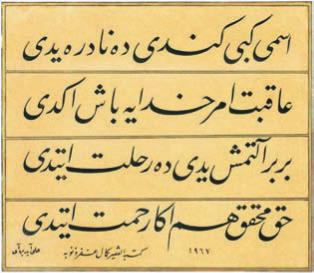 اسمی کبی کندی ده نادره یدی
عاقبت امر خدایه باش اکدی
بربر آلتمش یدی ده رحلت ایتدی
حق محقق هم اکا رحمت ایتدی
کتبه الفقیر کمال غفر ذنوبه ١٩٦٧